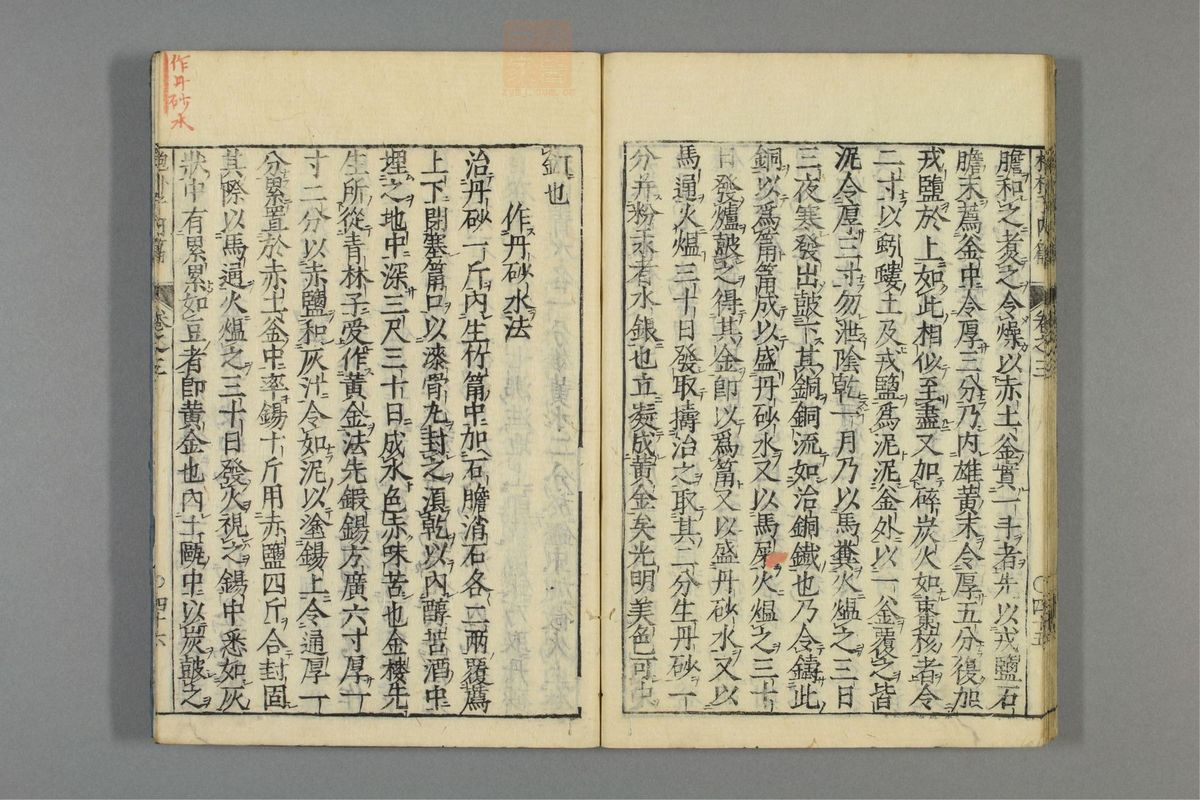 膽和之煮之令燥以赤土釜實一斗者先以戎鹽石
膽末薦釜中令厚三分乃內雄黃末令厚五分後加
戎鹽於上如此相似至盡又加碎炭火如棗核者令
二寸以蚓螻土及戎鹽爲泥泥釜外以一釜覆之皆
泥令厚三寸勿泄陰乾一月乃以馬糞火熅之三日
三夜寒發出鼓下其銅銅流如冶銅鐵也乃令鑄此
銅以爲筩筩成以盛丹砂水又以馬屎火熅之三十
日發爐鼓之得其金卽以爲筩又以盛丹砂水又以
馬通火熅三十日發取擣治之取其二分生丹砂一
分幷粉汞者水銀也立凝成黃金矣光明美色可中
釘也
作丹砂水法
治丹砂一斤內生竹筩中加石膽消石各二兩覆薦
上下閉塞筩口以漆骨丸封之須乾以內醇苦酒中
埋之地中深三尺三十日成水色赤味苦也金樓先
生所從青林子受作黃金法先鍛錫方廣六寸厚一
寸二分以赤鹽和灰汁令如泥以塗錫上令通厚一
分累置於赤土釜中率錫十斤用赤鹽四斤合封固
其際以馬通火熅之三十日發火視之錫中悉如灰
狀中有累累如豆者卽黃金也內土甌中以炭鼓之
作丹砂水
卷之三
四十五
卷之三
四十六